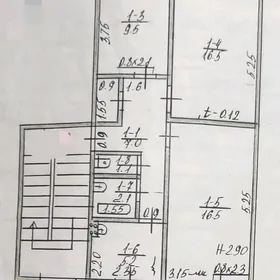 1-3
9.5
3.75
1-4
16.5
5.25
0.8x2.1
0.9
1.6
1.55
t-0.12
0.9
1-1
7.0
1-8
1.1
1-7
2.1
1.55
0.9
1-5
16.5
5.25
1-6
5.2
2.20
2.35
3.15
H-2.90
0.8x2.3